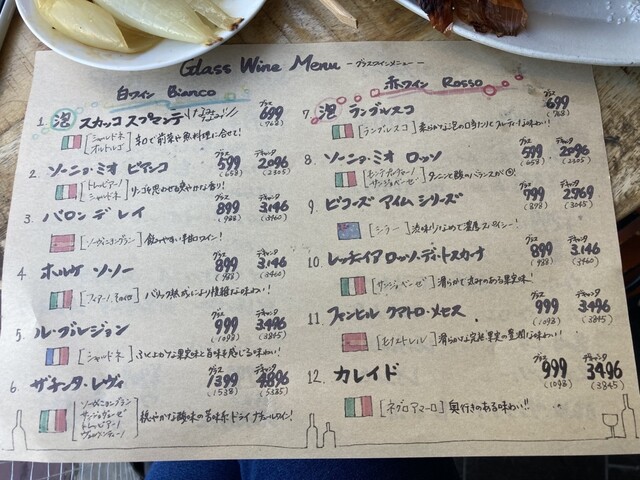 Glass Wine Menu -グラスワインメニュー-
白ワイン Bianco
1. 泡 スカッコ スプマンテ
グラス 699 (768)
[シャルドネ オルトルゴ] 辛口で前菜や魚料理に合せて!
2. ソーニョ・ミオ ビアンコ
グラス 599 (658) デキャンタ 2096 (2305)
[トレッビアーノ シャルドネ] リンゴを思わせる爽やかな香り!
3. バロン デ レイ
グラス 899 (988) デキャンタ 3146 (3460)
[ソーヴィニヨンブラン] 飲みやすい辛口ワイン!
4. ボルゲ ソソー
グラス 899 (988) デキャンタ 3146 (3460)
[フィアーノ その他] バリック熟成により複雑な味わい!
5. ル・ブルレジョン
グラス 999 (1098) デキャンタ 3496 (3845)
[シャルドネ] ふくよかな果実味と旨味を感じる味わい!
6. ザキンタ・レヴィ
グラス 1399 (1538) デキャンタ 4896 (5385)
[ソーヴィニヨンブラン サンジョヴェーゼ トレッビアーノ ヴェルメンティーノ] 穏やかな酸味の旨味系ドライナチュールワイン!
赤ワイン Rosso
7. 泡 ランブルスコ
グラス 699 (768)
[ランブルスコ] 柔らかな泡の口当りにフルーティーな味わい!
8. ソーニョ・ミオ ロッソ
グラス 599 (658) デキャンタ 2096 (2305)
[モンテプルチアーノ サンジョベーゼ] タンニンと酸のバランスが◎!
9. ビコーズ アイム シリーズ
グラス 799 (878) デキャンタ 2769 (3045)
[シラー] 渋味少なめで濃厚スパイシー!
10. レッチァイア ロッソ・ディ・トスカーナ
グラス 899 (988) デキャンタ 3146 (3460)
[サンジョベーゼ] 滑らかで深みのある果実味
11. ファンヒル クアトロ・メセス
グラス 999 (1098) デキャンタ 3496 (3845)
[モナストレル] 滑らかな完熟果実の豊潤な味わい!
12. カレイド
グラス 999 (1098) デキャンタ 3496 (3845)
[ネグロアマーロ] 奥行きのある味わい!!